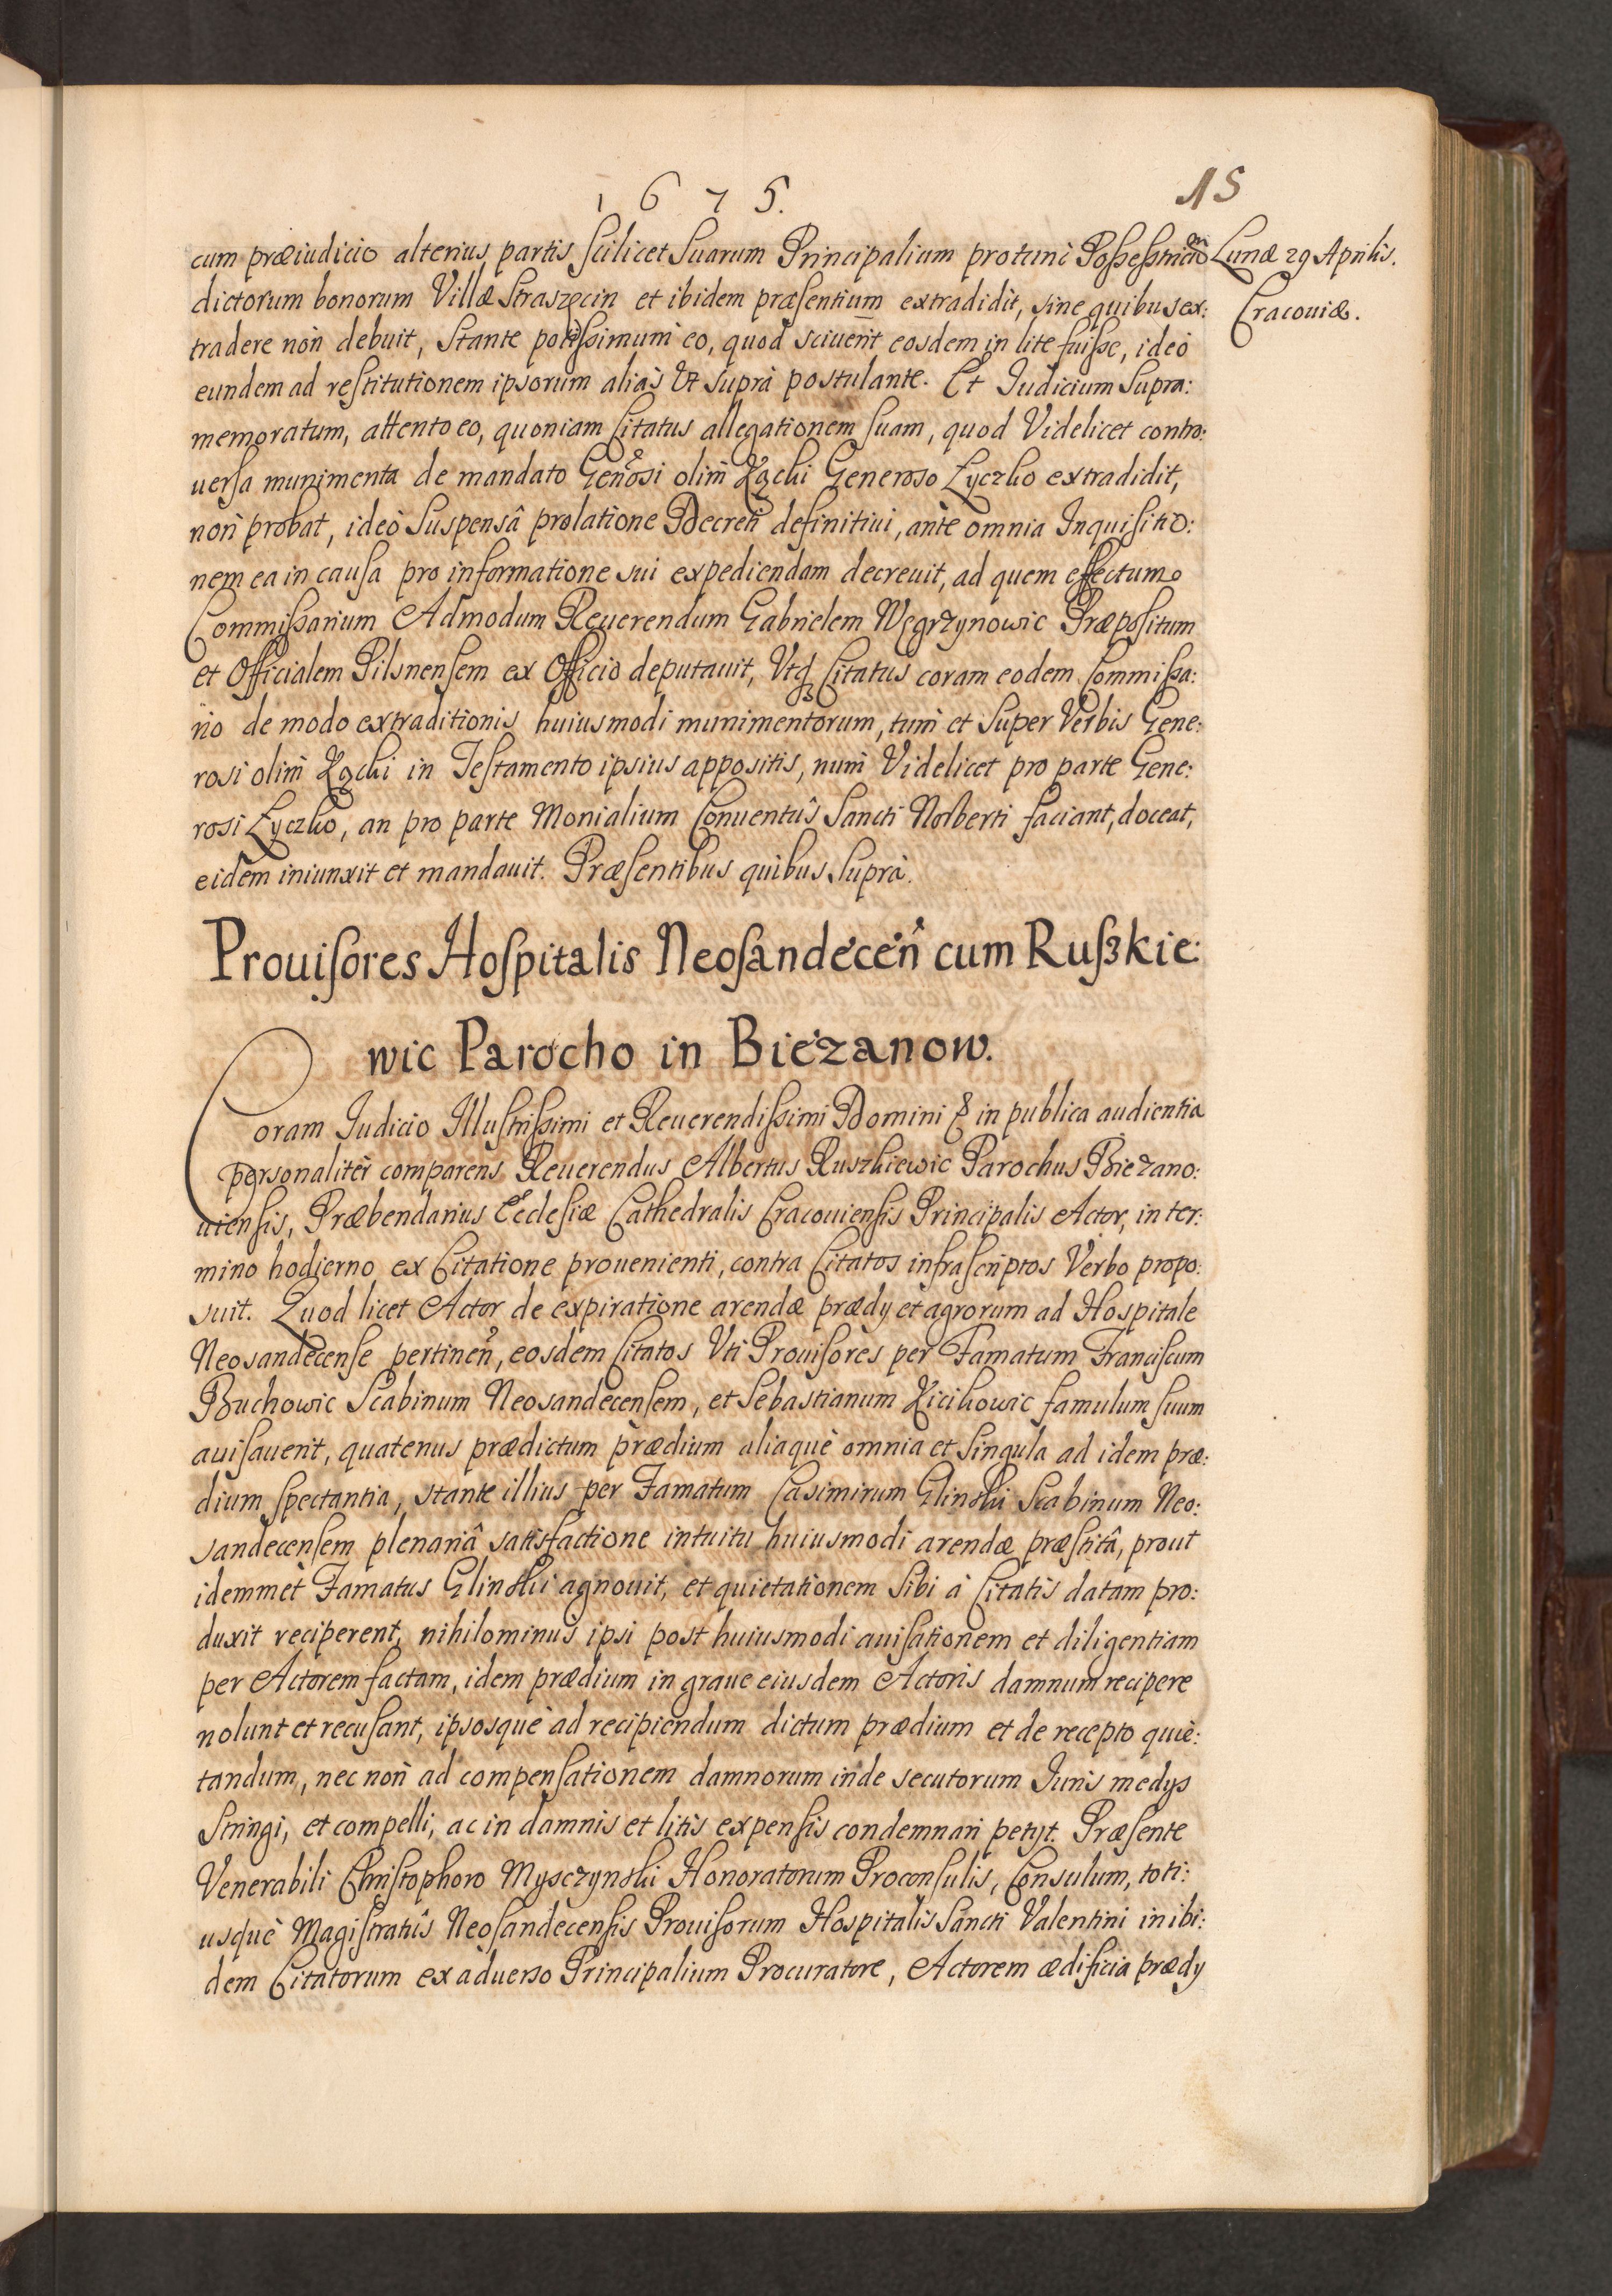 1675.
15
cum præiudicio alterius partis scilicet suarum Principalium protunc Possessricum
Lunæ 29 Aprilis.
Cracouiæ.
dictorum bonorum Villæ Straszęcin et ibidem præsentium extradidit, sine quibus ex:
tradere non debuit, stante potissimum eo, quod sciuerit eosdem in lite fuisse, ideo
eundem ad restitutionem ipsorum aliàs Vt suprà postulante. Et Iudicium supra:
memoratum, attento eo, quoniam Citatus allegationem suam, quod Videlicet contro:
uersa munimenta de mandato Generosi olim Łącki Generoso Łyczko extradidit,
non probat, ideò suspensâ prolatione Decreti definitiui, ante omnia Inquisitio:
nem ea in causa pro informatione sui expediendam decreuit, ad quem effectum
Commissarium Admodum Reuerendum Gabrielem Węgrzynowic Præpositum
et Officialem Pilsnensem ex Officio deputauit, Vtq Citatus coram eodem Commissa:
rio de modo extraditionis huiusmodi munimentorum, tum et super Verbis Gene:
rosi olim Łącki in Testamento ipsius appositis, num Videlicet pro parte Gene:
rosi Łyczko, an pro parte Monialium Conuentûs Sancti Norberti faciant, doceat,
eidem iniunxit et mandauit. Præsentibus quibus suprà.
Prouisores Hospitalis Neosandecen cum Ruszkie:
wic Parocho in Bieżanow.
Coram Iudicio Illustrissimi et Reuerendissimi Domini & in publica audientia
personalitèr comparens Reuerendus Albertus Ruszkiewic Parochus Bieżano:
uiensis, Præbendarius Ecclesiæ Cathedralis Cracouiensis Principalis Actor, in ter:
mino hodierno ex Citatione prouenienti, contra Citatos infrascriptos Verbo propo:
suit. Quod licet Actor de expiratione arendæ prædy et agrorum ad Hospitale
Neosandecense pertinen, eosdem Citatos Vti Prouisores per Famatum Franciscum
Buchowic Scabinum Neosandecensem, et Sebastianum Kicikowic famulum suum
auisauerit, quatenus prædictum prædium aliaquè omnia et singula ad idem præ:
dium spectantia, stante illius per Famatum Casimirum Glinski Scabinum Neo:
sandecensem plenariâ satisfactione intuitu huiusmodi arendæ præstitâ, prout
idemmèt Famatus Glinski agnouit, et quietationem sibi à Citatis datam pro:
duxit reciperent, nihilominus ipsi post huiusmodi auisationem et diligentiam
per Actorem factam, idem prædium in graue eiusdem Actoris damnum recipere
nolunt et recusant, ipsosquè ad recipiendum dictum prædium et de recepto quie:
tandum, nec non ad compensationem damnorum inde secutorum Iuris medys
stringi, et compelli, ac in damnis et litis expensis condemnari petyt. Præsente
Venerabili Christophoro Mysczynski Honoratorum Proconsulis, Consulum, toti:
usquè Magistratûs Neosandecensis Prouisorum Hospitalis Sancti Valentini inibi:
dem Citatorum ex aduerso Principalium Procuratore, Actorem ædificia prædy